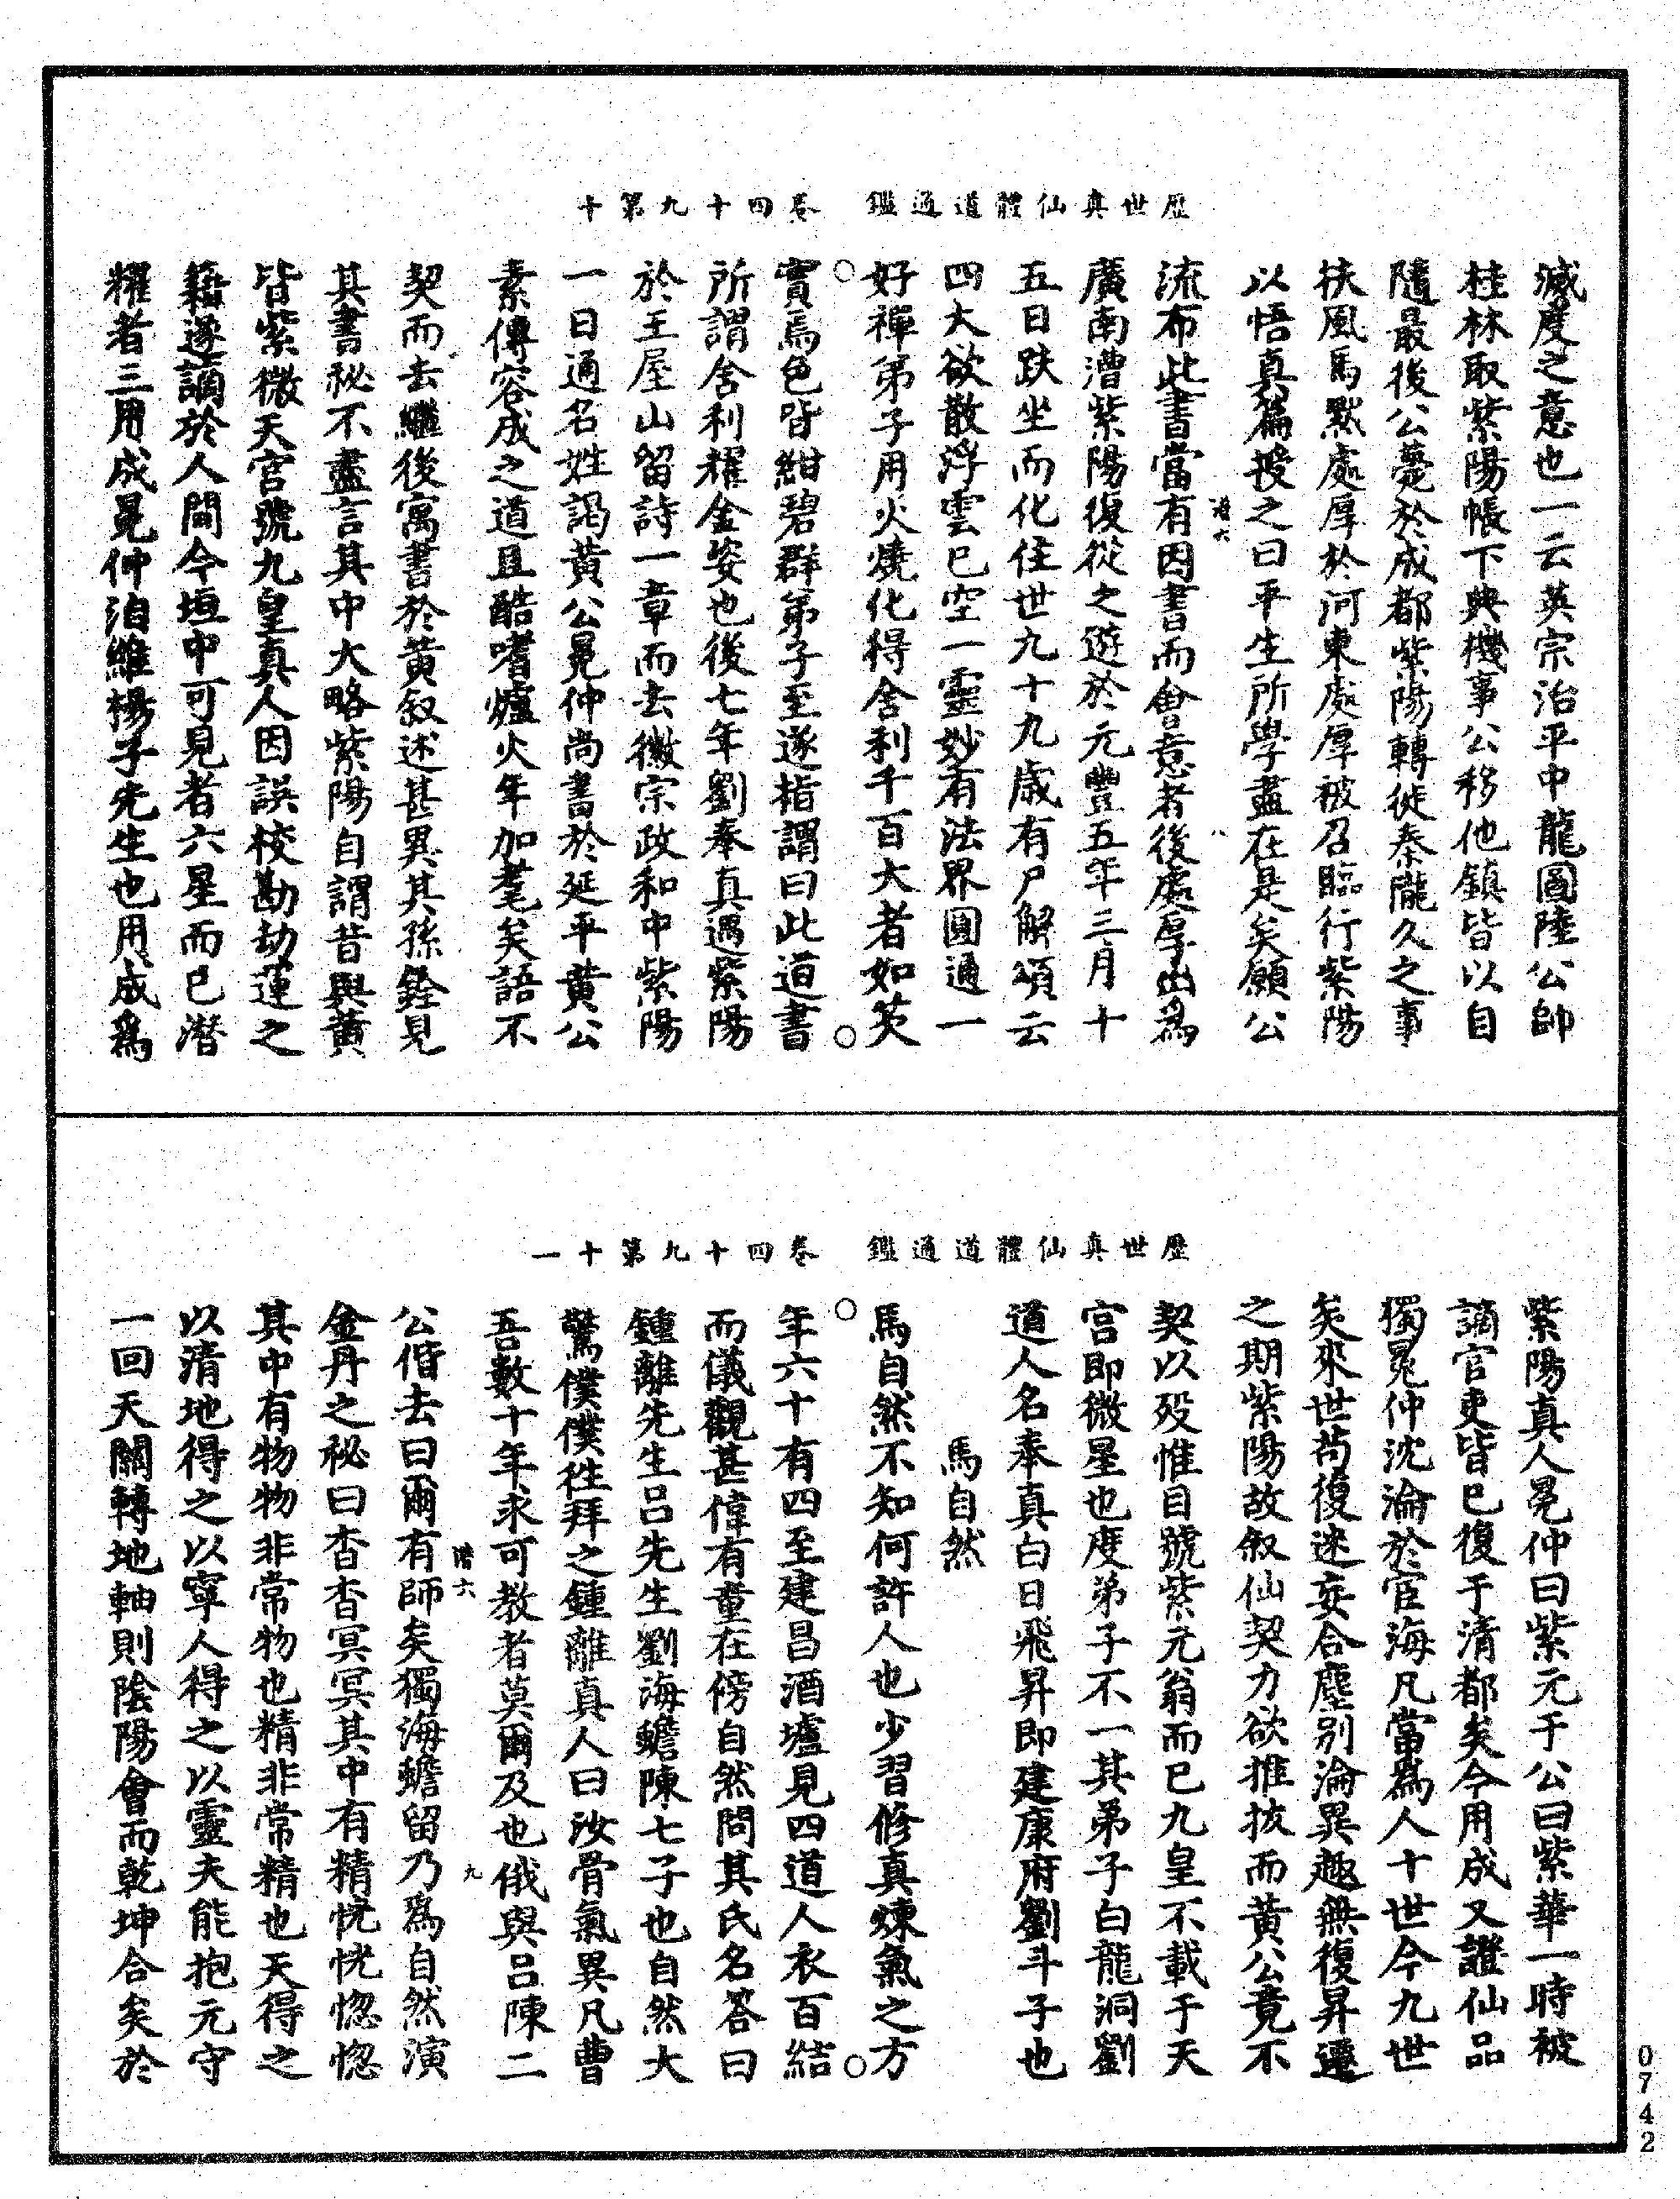 歷世真仙體道通鑑　卷四十九第十
滅度之意也一云英宗治平中龍圖陸公帥
桂林取紫陽帳下典機事公移他鎮皆以自
隨最後公薨於成都紫陽轉徙秦隴久之事
扶風馬默處厚於河東處厚被召臨行紫陽
以悟真篇授之曰平生所學盡在是矣願公
流布此書當有因書而會意者後處厚出爲
廣南漕紫陽復從之遊於元豐五年三月十
五日趺坐而化住世九十九歲有尸解頌云
四大欲散浮雲已空一靈妙有法界圓通一
好禪弟子用火燒化得舍利千百大者如芡
實焉色皆紺碧群弟子至遂指謂曰此道書
所謂舍利耀金姿也後七年劉奉真遇紫陽
於王屋山留詩一章而去徽宗政和中紫陽
一日通名姓謁黃公冕仲尚書於延平黃公
素傳容成之道且酷嗜爐火年加耄矣語不
契而去繼後寓書於黃叙述甚異其孫銓見
其書秘不盡言其中大略紫陽自謂昔與黃
皆紫微天宮號九皇真人因誤校勘劫運之
籍遂謫於人間今垣中可見者六星而已潛
耀者三用成冕仲洎維楊于先生也用成爲
潛六
八
歷世真仙體道通鑑　卷四十九第十一
紫陽真人冕仲曰紫元于公曰紫華一時被
謫官吏皆已復于清都矣今用成又證仙品
獨冕仲沈淪於宦海凡當爲人十世今九世
矣來世苟復迷妄合塵别淪異趣無復昇遷
之期紫陽故叙仙契力欲推拔而黃公竟不
契以殁惟自號紫元翁而已九皇不載于天
宮即微星也度弟子不一其弟子白龍洞劉
道人名奉真白日飛昇即建康府劉斗子也
馬自然
馬自然不知何許人也少習修真煉氣之方
年六十有四至建昌酒壚見四道人衣百結
而儀觀甚偉有童在傍自然問其氏名答曰
鍾離先生吕先生劉海蟾陳七子也自然大
驚僕僕往拜之鍾離真人曰汝骨氣異凡曹
吾數十年求可教者莫爾及也俄與吕陳二
公偕去曰爾有師矣獨海蟾留乃爲自然演
金丹之秘曰杳杳冥冥其中有精恍恍惚惚
其中有物物非常物也精非常精也天得之
以清地得之以寧人得之以靈夫能抱元守
一回天關轉地軸則陰陽會而乾坤合矣於
潛六
九
0742